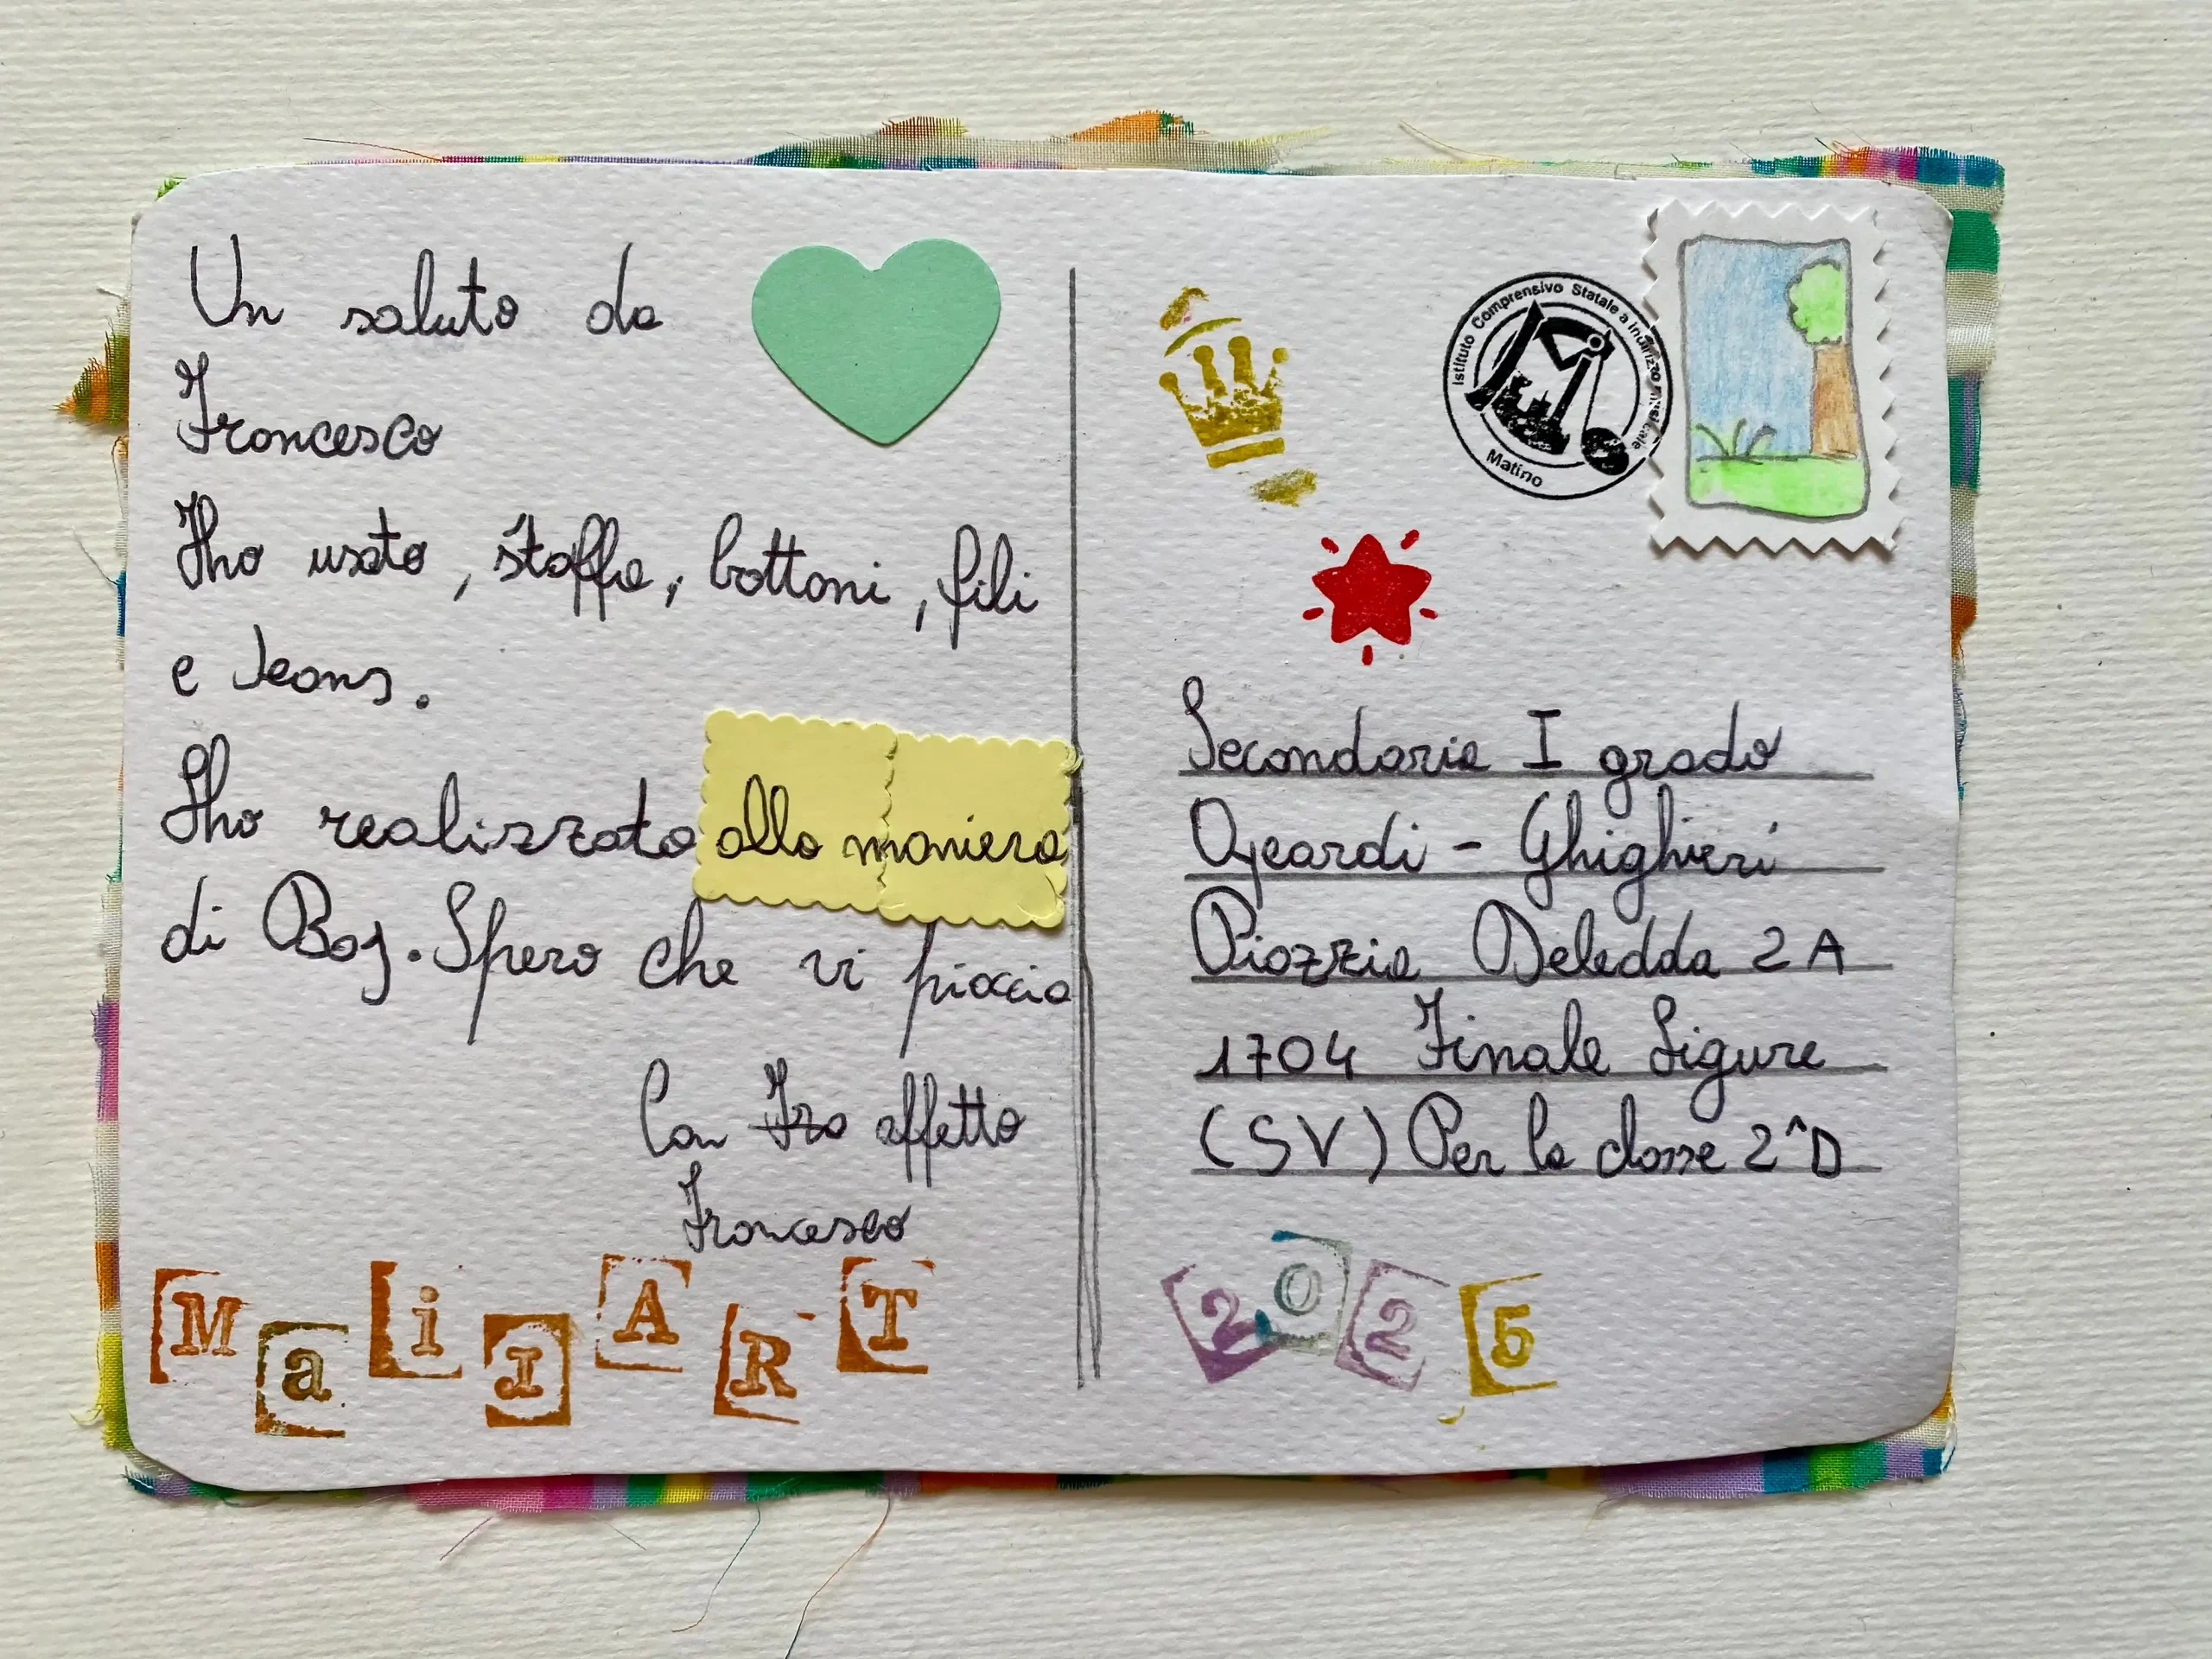 Un saluto da
Francesco
Ho usato, stoffe, bottoni, fili
e Jeans.
Ho realizzato alla maniera
di Boj. Spero che vi piaccia
Con affetto
Francesco
MaiIART
Istituto Comprensivo Statale a indirizzo musicale
Matino
Secondaria I grado
Ghighieri
Piazzia Deledda 2A
1704 Finale Ligure
(SV) Per la classe 2^D
2025